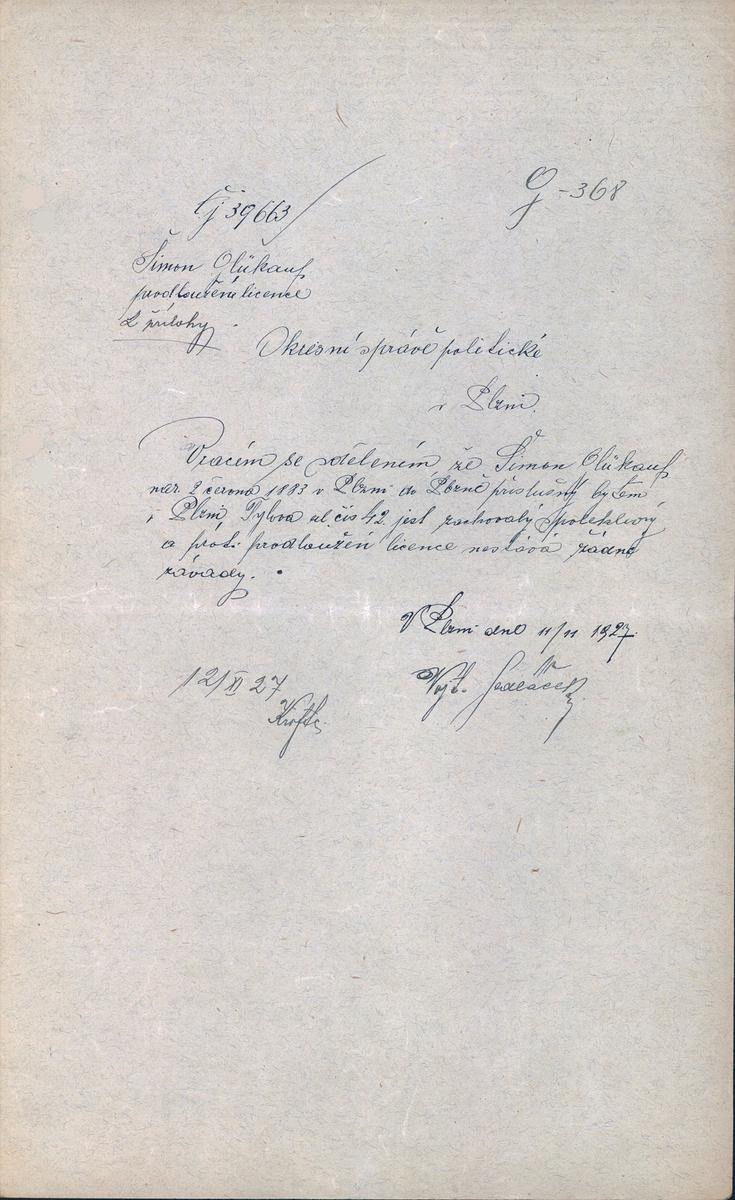 Čj 39663
G - 368
Šimon Glükauf
prodloužení licence
2 přílohy
Okresní správě politické
v Plzni.
Vracím se sdělením, že Šimon Glükauf
nar. 2 června 1883 v Plzni do Plzně příslušný bytem
v Plzni, Tylova ul čís 42 jest zachovalý spolehlivý
a proti prodloužení licence nestává žádné
závady.
V Plzni dne 11/11 1927.
12/XI 27
Vojt. Sedláček